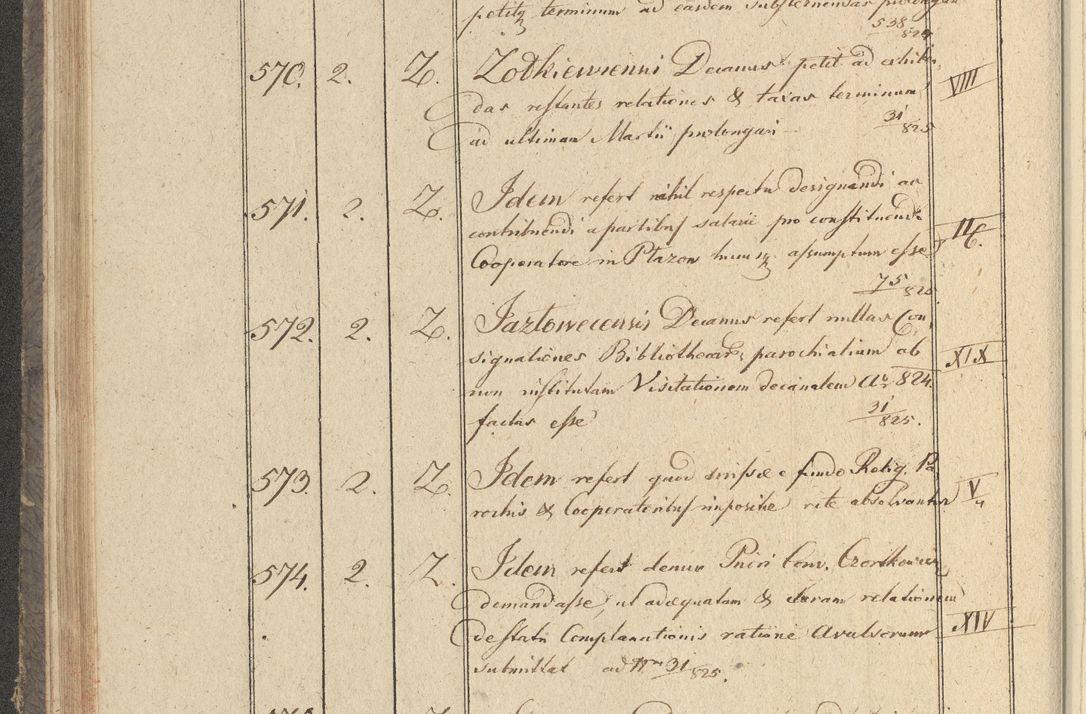 petitq terminum ad easdem substernendas prolongari
538/824
570. 2. Z. Zołkiewienni Decanus petit ad exhiben
das restantes relationes & taxas terminum VIII
ad ultimam Martii prolongari 31/825
571. 2. Z. Idem refert nihil respectu designandi ac
contribuendi a partibus salarii pro constituendo II
Cooperatore in Płazow hucusq assumptum esse
75/825
572. 2. Z. Jazłowecensis Decanus refert nullas Con
signationes Bibliothecar. parochialium ob XIX
non institutam Visitationem decanalem Ao 824
factas esse 31/825.
573. 2. Z. Idem refert quod onera e fundo Relig. Pa
rochis & Cooperatoribus imposita rite absolvantur V/4
574. 2. Z. Idem refert denuo Priori Conv. Czortkoviens
demandasse, ut adæquatam & claram relationem
de statu Complanationis ratione Avulsorum XIV
submittat ad Nrum 31/825.